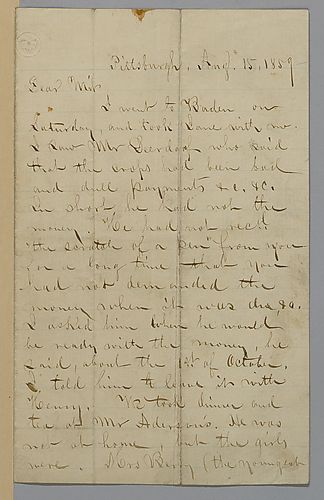 Pittsburgh, Augt 15, 1859
Dear Wife
I went to Baden on
Saturday, and took Jane with me.
I saw Mr who said
that the crops had been bad
and dull payments &c. &c.
In short, he had not the
money. He had not recd.
"the scratch of a pen" from you
for a long time — that you
had not demanded the
money when it was due, &c.
I asked him when he would
be ready with the money, he
said, about the 1st of October.
I told him to leave it with
Henry. We took dinner and
tea at Mr He was
not at home, but the girls
were. Mrs Berry (the youngest